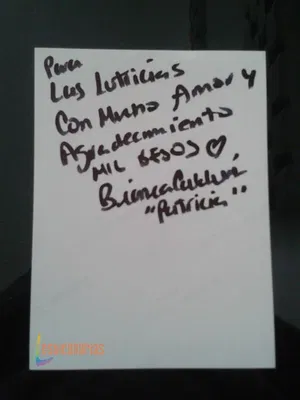 Para
Las Lutricias
Con Mucho Amor y
Agradecimiento
MIL BESOS
Bianca
"Patricia"